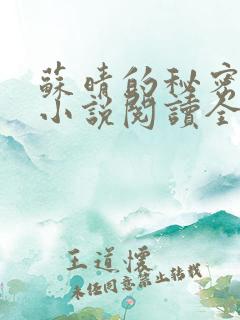 蘇晴的秘密
小說閱讀全
王道懷
未經同意禁止轉載